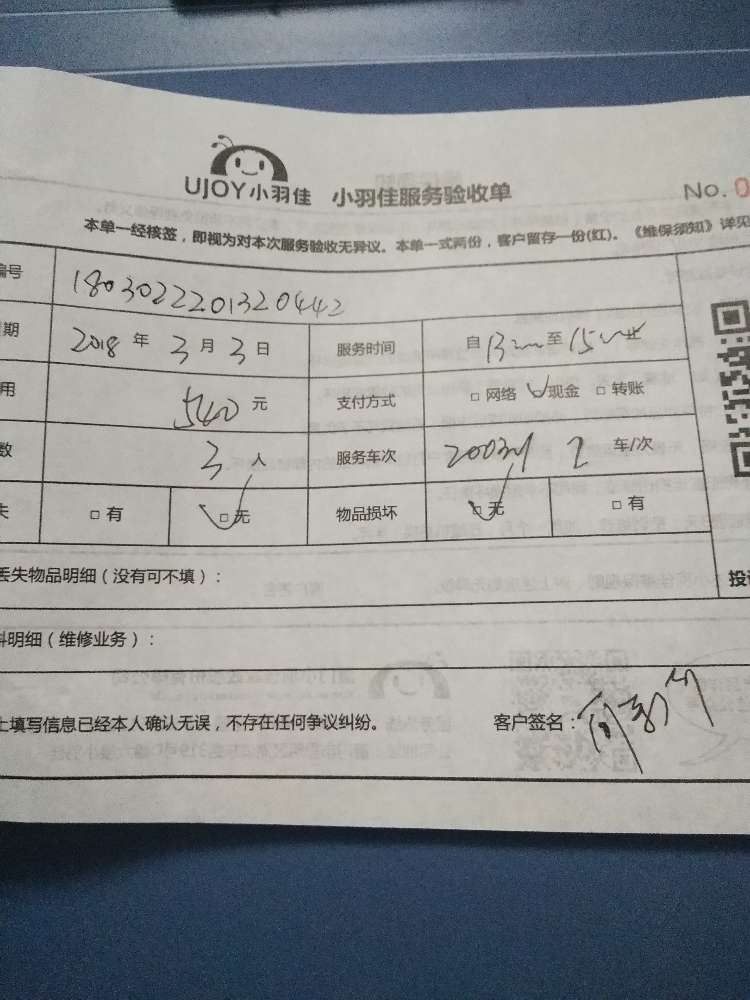 UJOY小羽佳 小羽佳服务验收单 No. 0
本单一经核签，即视为对本次服务验收无异议。本单一式两份，客户留存一份(红)。《维保须知》详见
编号 1803022201320442
期 2018 年 3 月 3 日 服务时间 自 13 至 15
用 540 元 支付方式 □ 网络 □ 现金 □ 转账
数 3 人 服务车次 2 车/次
失 □ 有 □ 无 物品损坏 □ 无 □ 有
丢失物品明细（没有可不填）： 投
料明细（维修业务）：
上填写信息已经本人确认无误，不存在任何争议纠纷。 客户签名：